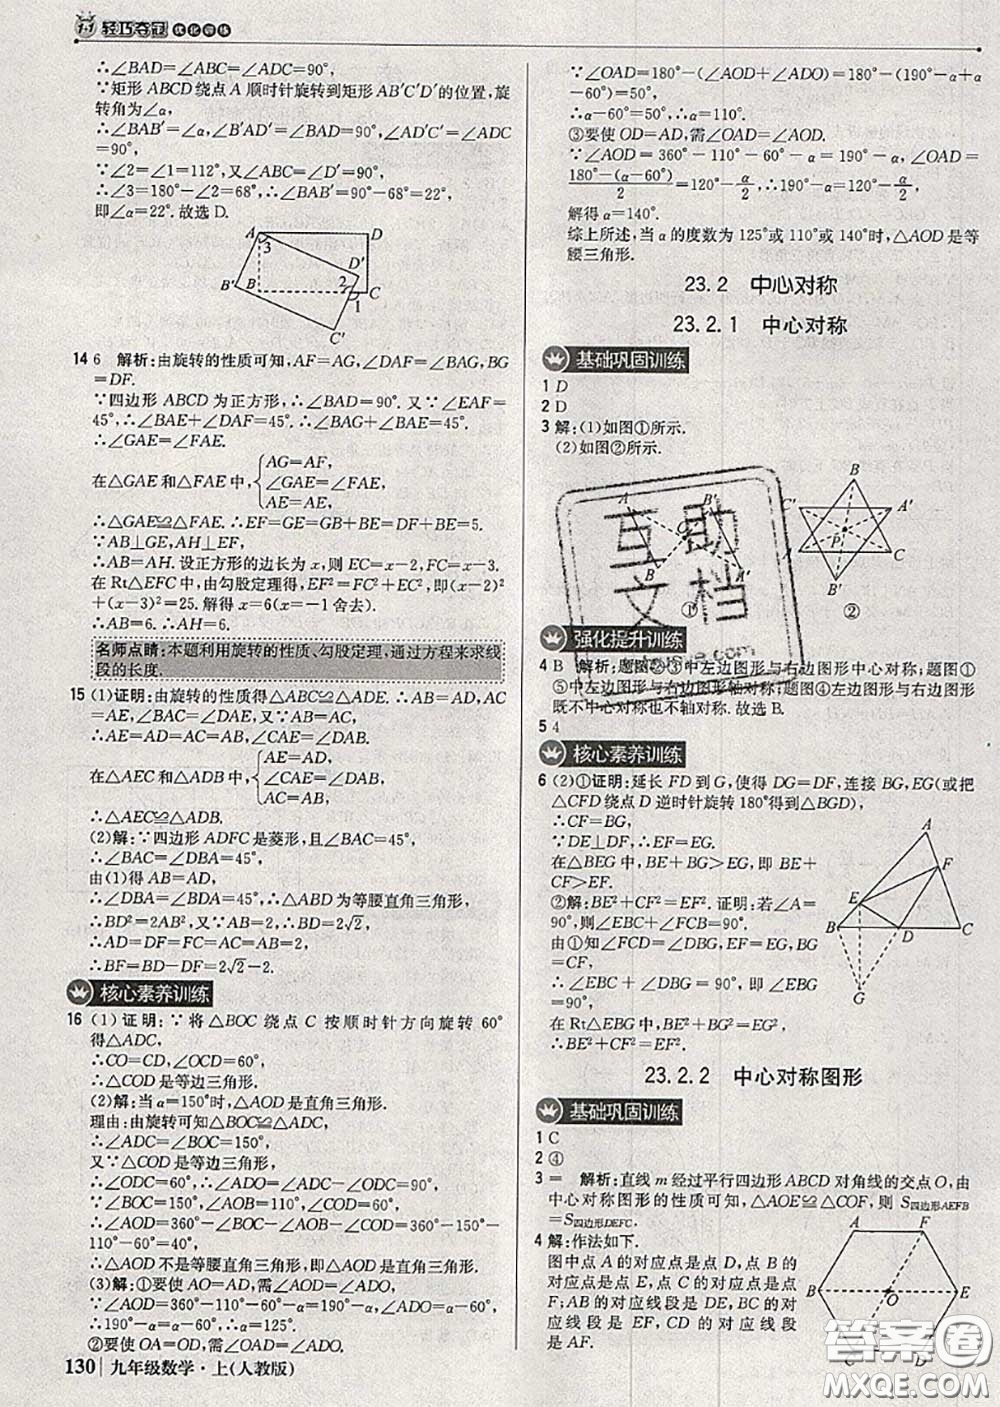 1+1 轻巧夺冠 优化训练
∴∠BAD=∠ABC=∠ADC=90°,
∵矩形 ABCD 绕点 A 顺时针旋转到矩形 AB'C'D' 的位置,旋
转角为∠α,
∴∠BAB'=∠α,∠B'AD'=∠BAD=90°,∠AD'C'=∠ADC
=90°,
∵∠2=∠1=112°,又∠ABC=∠D'=90°,
∴∠3=180°-∠2=68°,∴∠BAB'=90°-68°=22°,
即∠α=22°.故选 D.
A D 3 D' B' B 2 C 1 C'
14 6 解析:由旋转的性质可知,AF=AG,∠DAF=∠BAG,BG
=DF.
∵四边形 ABCD 为正方形,∴∠BAD=90°.又∵∠EAF=
45°,∴∠BAE+∠DAF=45°.∴∠BAG+∠BAE=45°.
∴∠GAE=∠FAE.
AG=AF,
在△GAE 和△FAE 中, ∠GAE=∠FAE,
AE=AE,
∴△GAE≌△FAE.∴EF=GE=GB+BE=DF+BE=5.
∵AB⊥GE,AH⊥EF,
∴AB=AH.设正方形的边长为 x,则 EC=x-2,FC=x-3.
在 Rt△EFC 中,由勾股定理得,EF²=FC²+EC²,即(x-2)²
+(x-3)²=25.解得 x=6(x=-1 舍去).
∴AB=6.∴AH=6.
名师点睛:本题利用旋转的性质、勾股定理,通过方程来求线
段的长度.
15 (1)证明:由旋转的性质得△ABC≌△ADE.∴AB=AD,AC
=AE,∠BAC=∠DAE,又∵AB=AC,
∴AE=AD=AC=AB,∠EAC=∠DAB.
AE=AD,
在△AEC 和△ADB 中, ∠EAC=∠DAB,
AC=AB,
∴△AEC≌△ADB.
(2)解:∵四边形 ADFC 是菱形,且∠BAC=45°,
∴∠BAC=∠DBA=45°,
由(1)得 AB=AD,
∴∠DBA=∠BDA=45°,∴△ABD 为等腰直角三角形,
∴BD²=2AB²,又∵AB=2,∴BD=2√2.
∴AD=DF=FC=AC=AB=2,
∴BF=BD-DF=2√2-2.
核心素养训练
16 (1)证明:∵将△BOC 绕点 C 按顺时针方向旋转 60°
得△ADC,
∴CO=CD,∠OCD=60°,
∴△COD 是等边三角形.
(2)解:当 α=150°时,△AOD 是直角三角形.
理由:由旋转可知△BOC≌△ADC,
∴∠ADC=∠BOC=150°,
又∵△COD 是等边三角形,
∴∠ODC=60°,∴∠ADO=∠ADC-∠ODC=90°,
∵∠α=150°,∠AOB=110°,∠COD=60°,
∴∠AOD=360°-∠BOC-∠AOB-∠COD=360°-150°-
110°-60°=40°,
∴△AOD 不是等腰三角形,∴△AOD 是直角三角形.
(3)解:①要使 AO=AD,需∠AOD=∠ADO.
∵∠AOD=360°-110°-60°-α=190°-α,∠ADO=α-
60°,∴190°-α=α-60°,∴α=125°.
②要使 OA=OD,需∠OAD=∠ADO.
130 九年级数学·上(人教版)
∵∠OAD=180°-(∠AOD+∠ADO)=180°-(190°-α+α
-60°)=50°,
∴α-60°=50°,∴α=110°.
③要使 OD=AD,需∠OAD=∠AOD.
∵∠AOD=360°-110°-60°-α=190°-α,∠OAD=
180°-(α-60°)/2=120°-α/2,∴190°-α=120°-α/2,
解得 α=140°.
综上所述,当 α 的度数为 125°或 110°或 140°时,△AOD 是等
腰三角形.
23.2 中心对称
23.2.1 中心对称
基础巩固训练
1 D
2 D
3 解:(1)如图①所示.
(2)如图②所示.
A B' O B A' ①
B C' A' P A C B' ②
互助
文档
强化提升训练
4 B 解析:题图②③中左边图形与右边图形中心对称;题图①
⑤中左边图形与右边图形轴对称;题图④左边图形与右边图形
既不中心对称也不轴对称.故选 B.
5 4
核心素养训练
6 (2)①证明:延长 FD 到 G,使得 DG=DF,连接 BG,EG(或把
△CFD 绕点 D 逆时针旋转 180°得到△BGD),
∴CF=BG,
∵DE⊥DF,∴EF=EG.
在△BEG 中,BE+BG>EG,即 BE+
CF>EF.
②解:BE²+CF²=EF².证明:若∠A=
90°,则∠EBC+∠FCB=90°,
由①知∠FCD=∠DBG,EF=EG,
∴∠EBC+∠DBG=90°,即∠EBG
=90°,
在 Rt△EBG 中,BE²+BG²=EG²,
∴BE²+CF²=EF².
A F E B D C G
23.2.2 中心对称图形
基础巩固训练
1 C
2 ④
3 = 解析:直线 m 经过平行四边形 ABCD 对角线的交点 O,由
中心对称图形的性质可知,△AOE≌△COF,则 S四边形AEFB
=S四边形DEFC.
4 解:作法如下.
图中点 A 的对应点是点 D,点 B 的
对应点是点 E,点 C 的对应点是点
F,AB 的对应线段是 DE,BC 的对应
线段是 EF,CD 的对应线段
是 AF.
A F B O E C D
答案圈
MXQE.COM